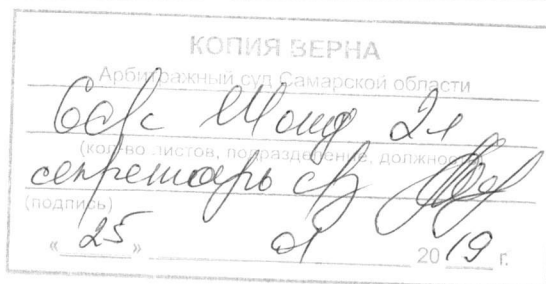 КОПИЯ ВЕРНА
Арбитражный суд Самарской области
2л
(кол-во листов, подразделение, должность)
секретарь с/з
(подпись)
« 25 » 01 2019 г.